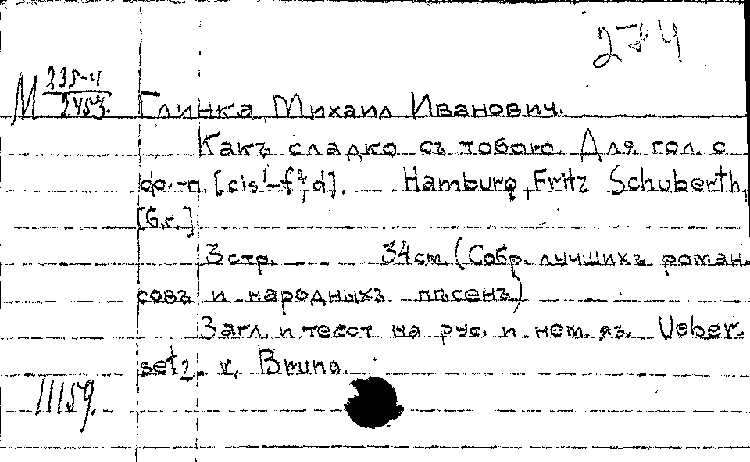 274
М 235-4
2453.
Глинка, Михаил Иванович.
Какъ сладко съ тобою. Для гол. с
ф.-п [cis¹-f²,d]. Hamburg, Fritz Schuberth,
[б.г.]
3 стр. 34 см. (Собр. лучшихъ роман-
совъ и народныхъ пѣсенъ)
Загл. и текст на рус. и нем. яз. Ueber-
setz. v. Bruno.
11159.